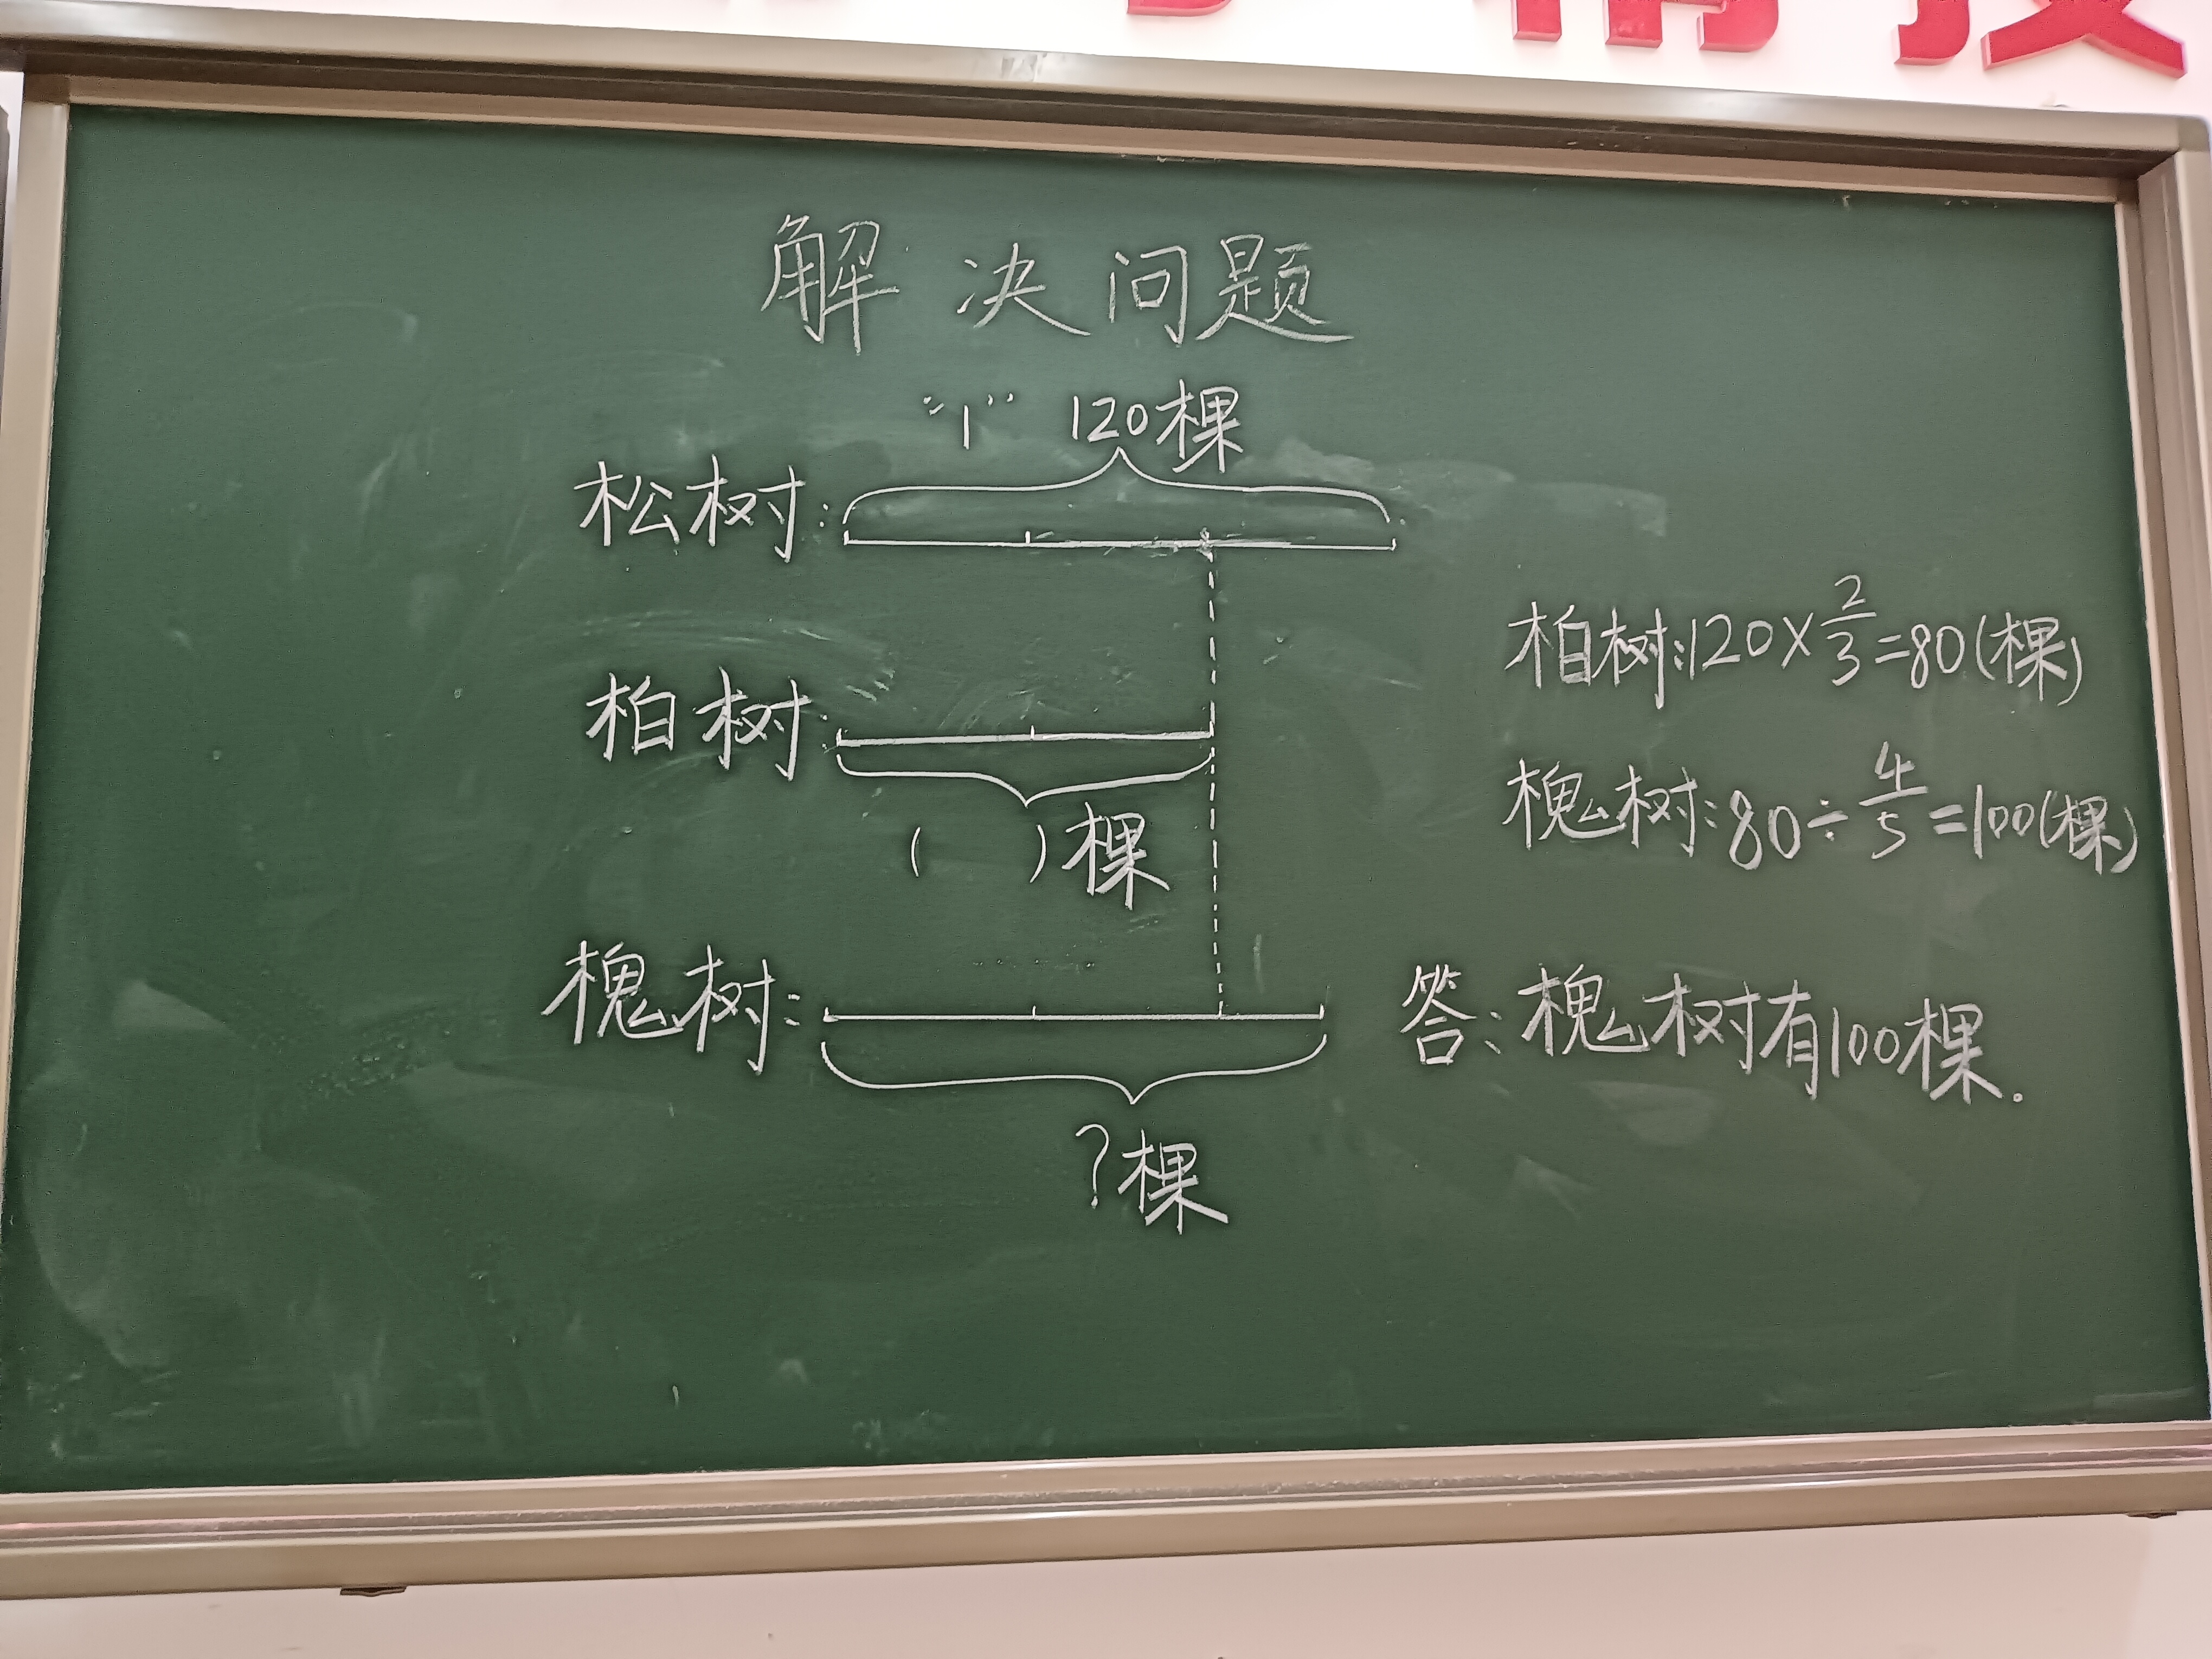 解决问题
“1” 120棵
松树:
柏树:
( )棵
槐树:
?棵
柏树:120×2/3=80(棵)
槐树:80÷4/5=100(棵)
答:槐树有100棵.